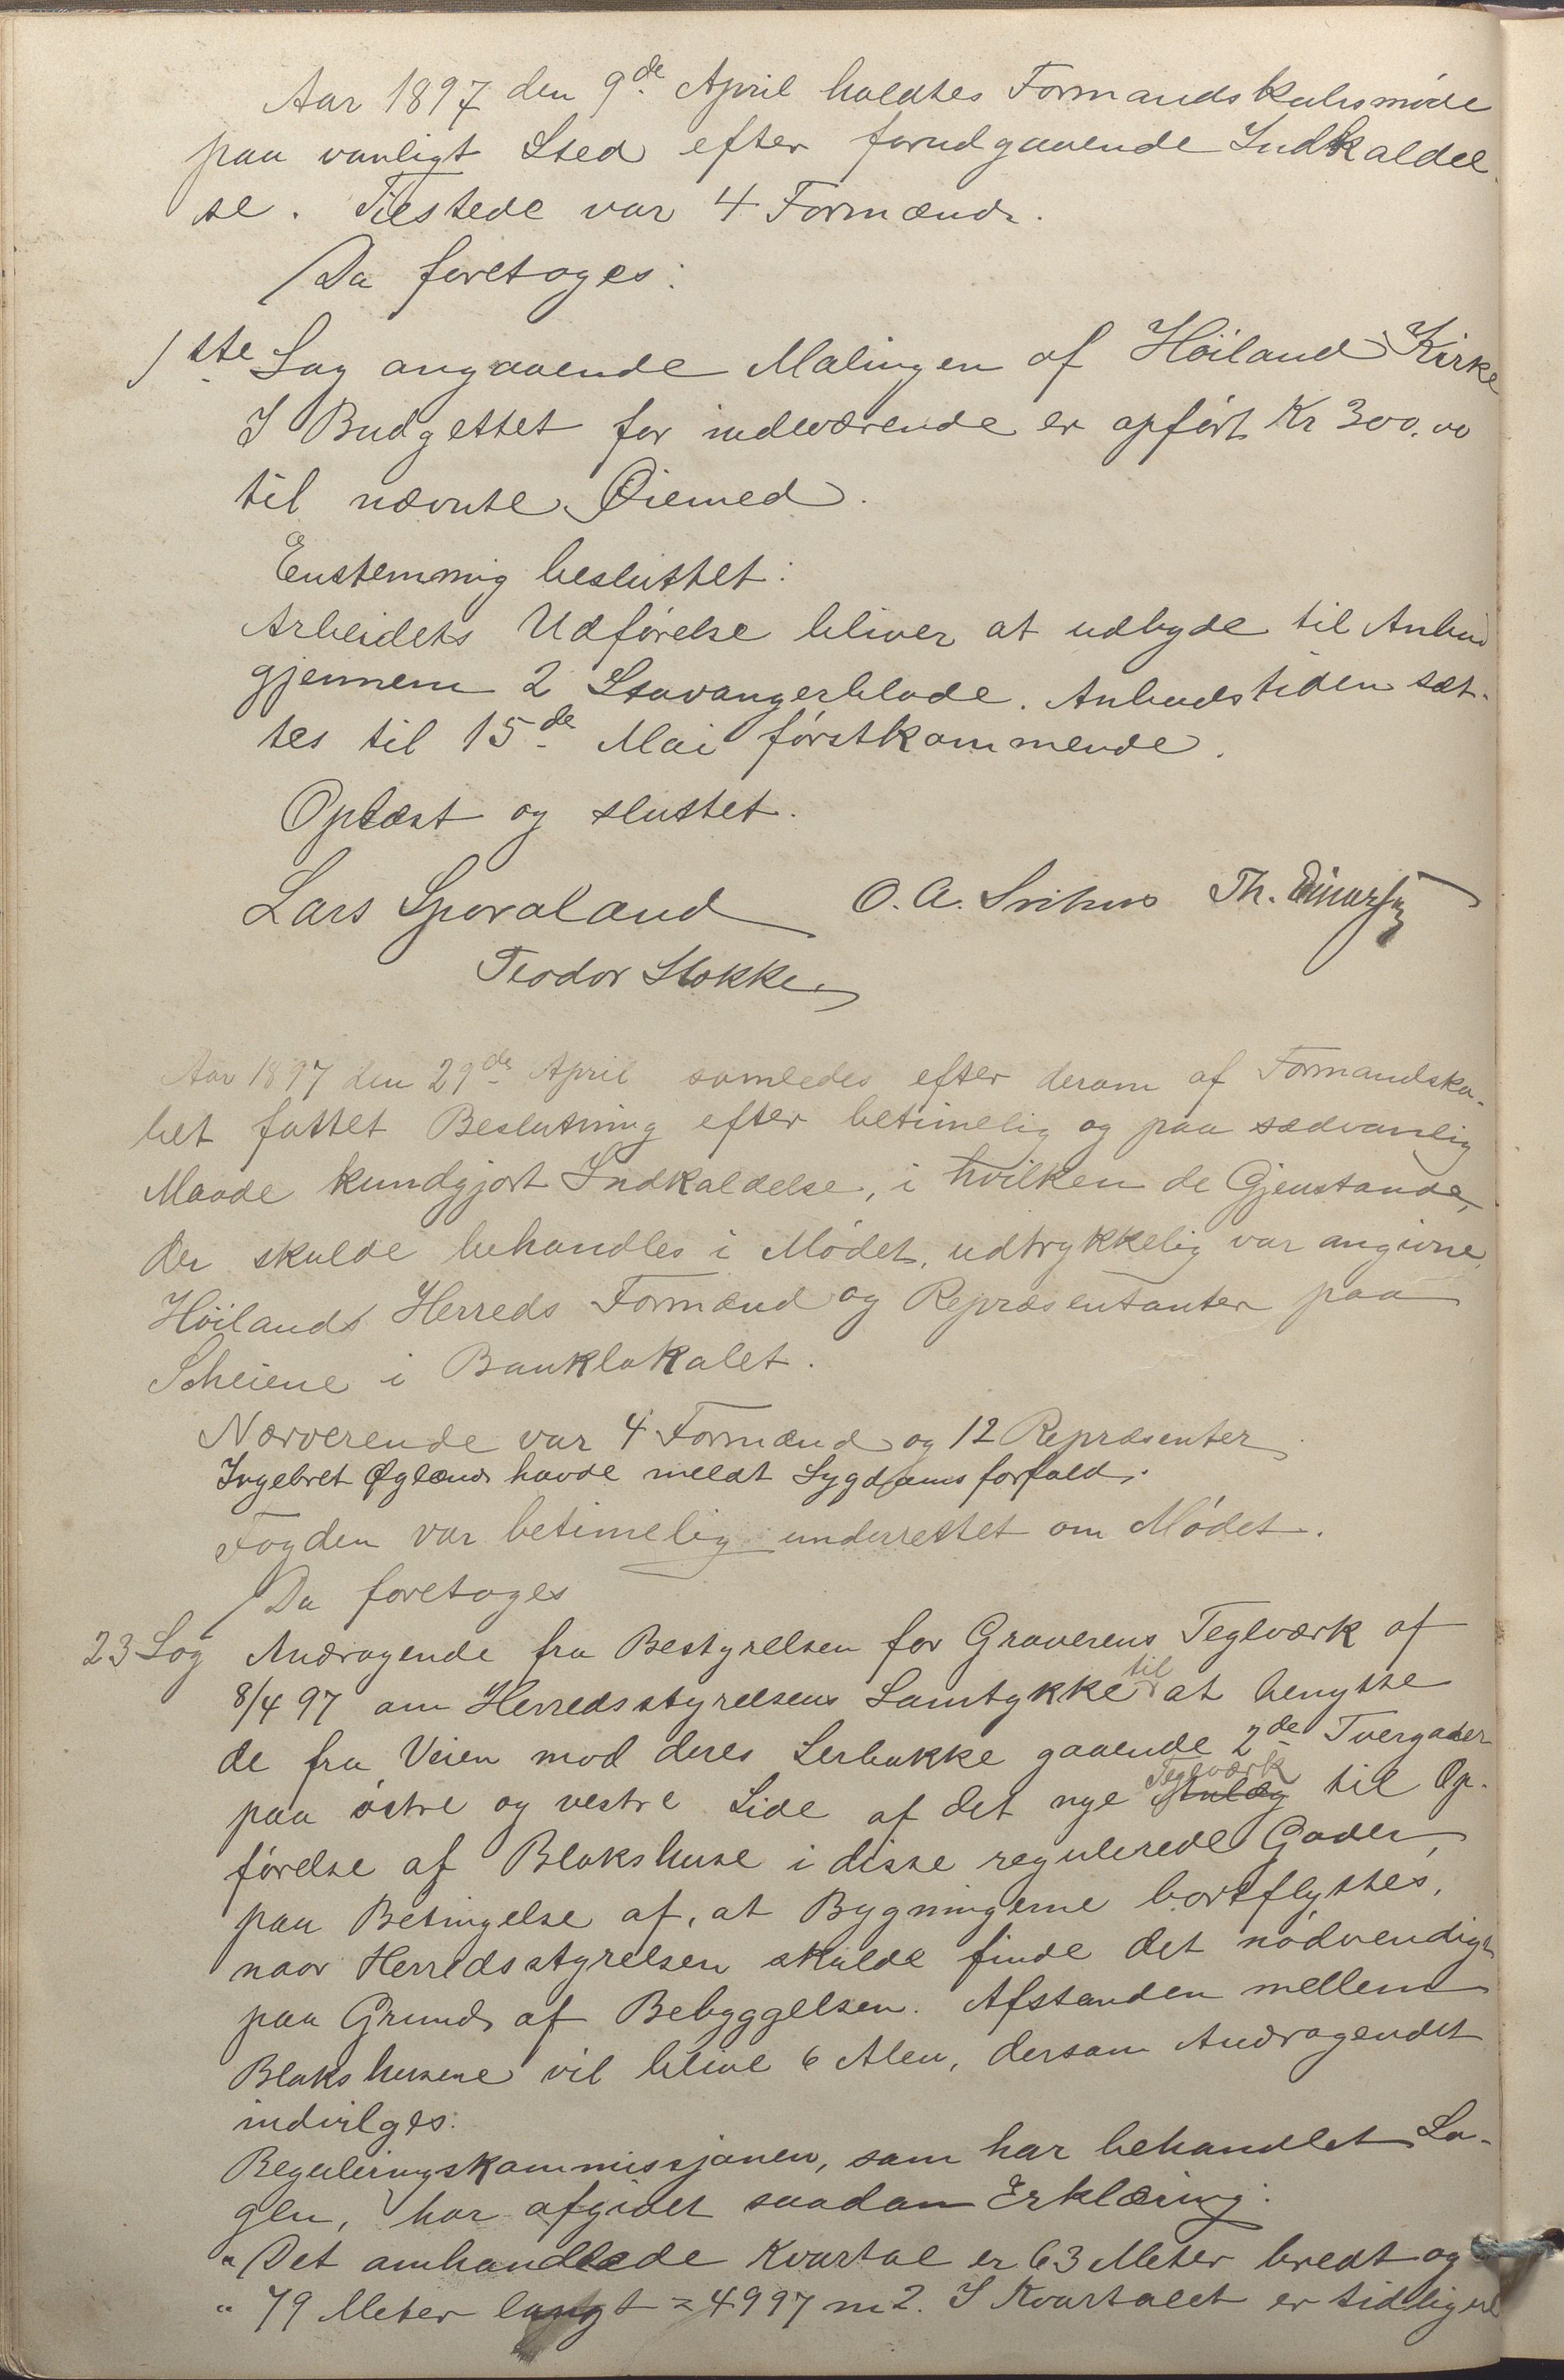 Aar 1897 den 9de April holdtes Formandskabsmøde
paa vanligt Sted efter forudgaaende Indkaldel
se. Tilstede var 4 Formænd.
Da foretoges:
1ste Sag angaaende Malingen af Høiland Kirke
I Budgettet for indeværende er opført Kr 300,00
til nævnte Øiemed.
Enstemmig besluttet:
Arbeidets Udførelse bliver at udbyde til Anbud
gjennem 2 Stavangerblade. Anbudstiden sæt-
tes til 15de Mai førstkommende.
Oplæst og sluttet.
Lars Sporaland O. A. Svihus Th.
Teodor Stokke
Aar 1897 den 29de April samledes efter derom af Formandska-
bet fattet Beslutning efter betimelig og paa sædvanlig
Maade kundgjort Indkaldelse, i hvilken de Gjenstande,
der skulde behandles i Mødet, udtrykkelig var angivne,
Høilands Herreds Formænd og Repræsentanter paa
Scheiene i Banklokalet.
Nærverende var 4 Formænd og 12 Repræsenter
Ingebret Øglænd havde meldt Sygdomsforfald.
Fogden var betimelig underrettet om Mødet.
Da foretoges
23 Sag Andragende fra Bestyrelsen for Graverens Teglværk af
8/4 97 om Herredsstyrelsens Samtykke til at benytte
de fra Veien mod deres Lerbakke gaaende 2de Tvergader
paa østre og vestre Side af det nye Anlæg Teglværk til Op-
førelse af Blokshuse i disse regulerede Gader,
paa Betingelse af, at Bygningerne bortflyttes,
naar Herredsstyrelsen skulde finde det nødvendigt
paa Grund af Bebyggelsen. Afstanden mellem
Blokshusene vil blive 6 Alen, dersom Andragendet
indvilges.
Reguleringskommissjonen, som har behandlet Sa-
gen, har afgivet saadan Erklæring:
"Det omhandlede Kvartal er 63 Meter bredt og
" 79 Meter langt = 4997 m2. I Kvartalet er tidligere